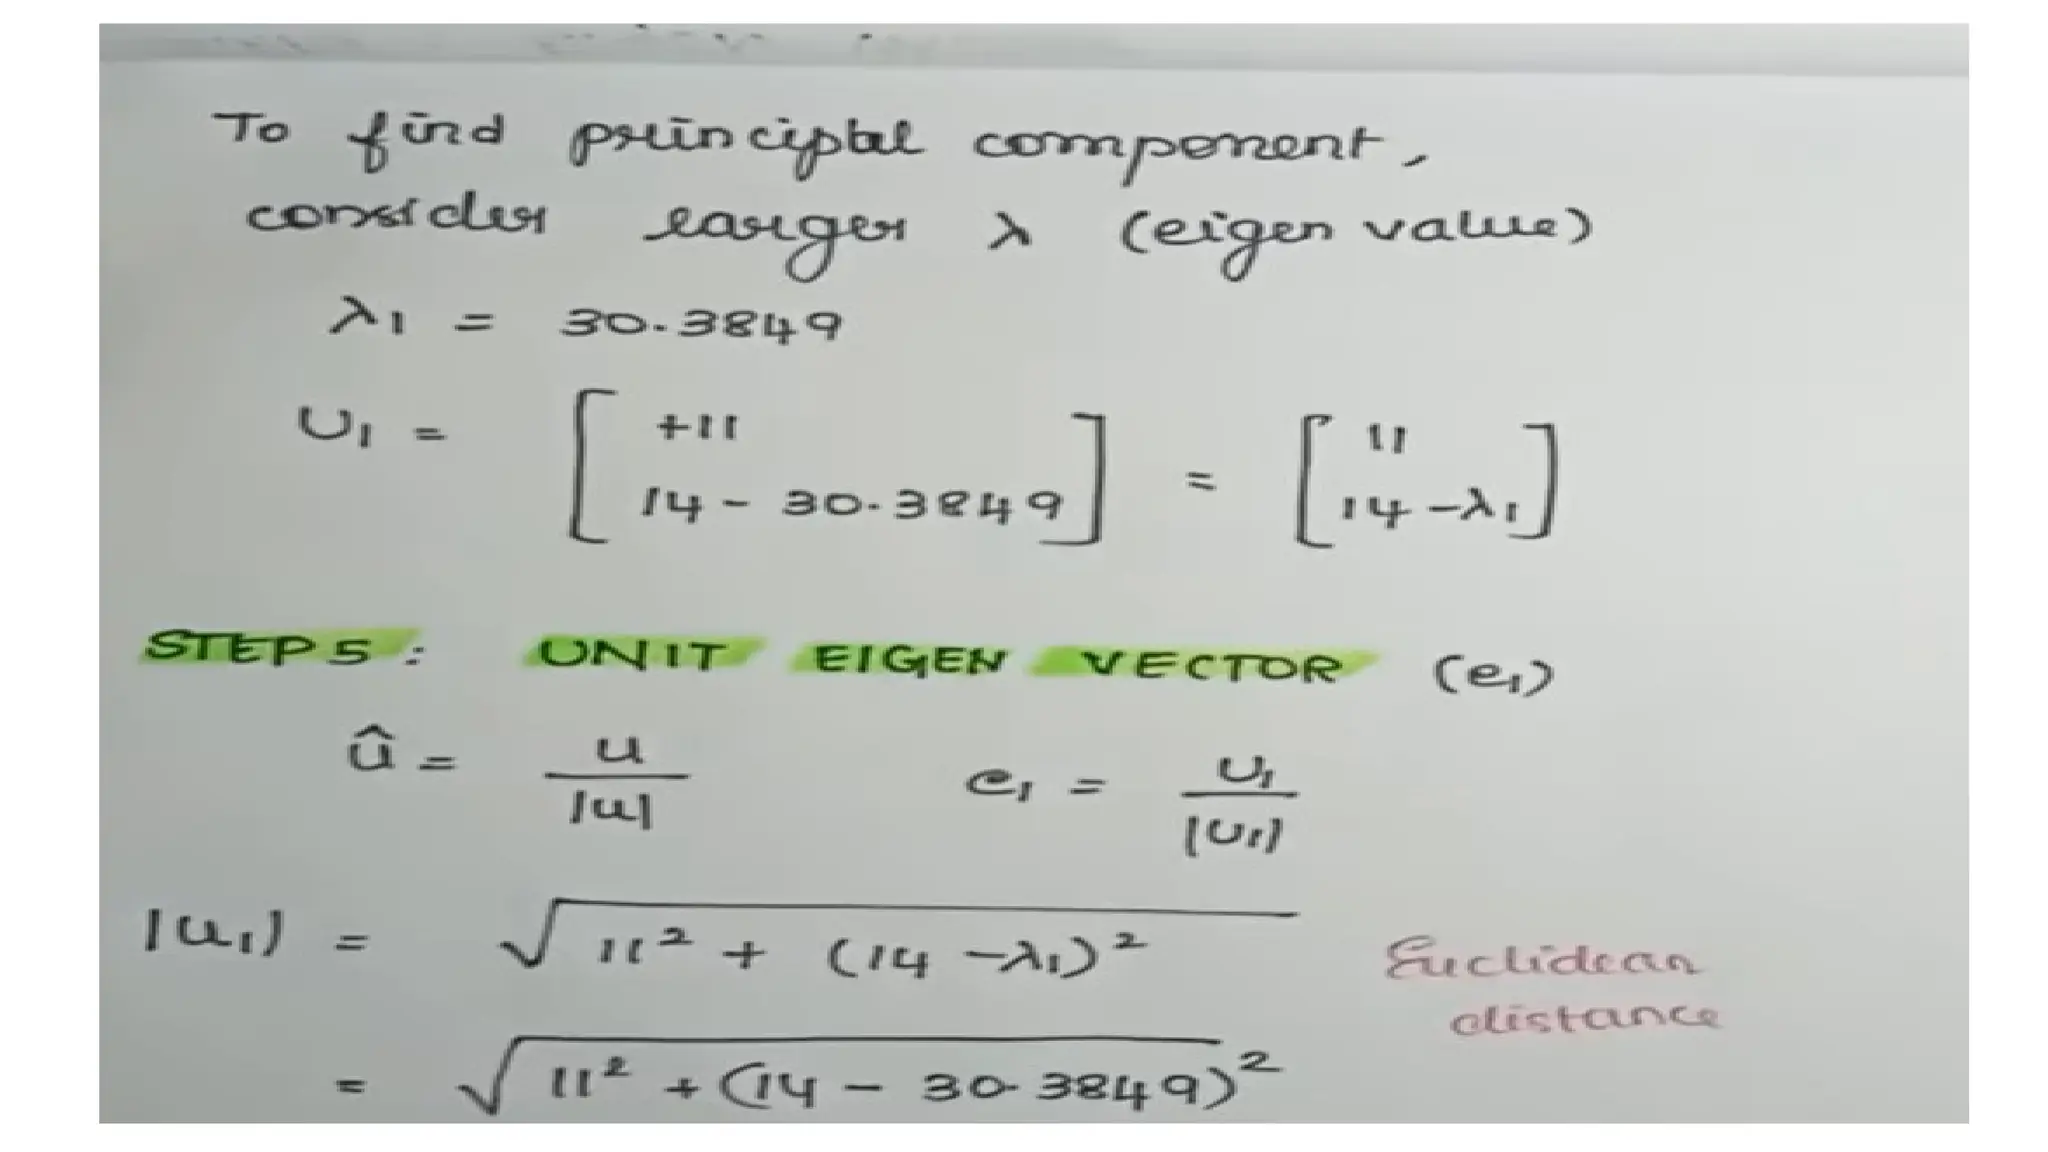 To find principal component,
consider larger λ (eigen value)
λ1 = 30.3849
U1 = [ +11
14 - 30.3849 ] = [ 11
14 - λ1 ]
STEP 5 : UNIT EIGEN VECTOR (e1)
û = u / |u| e1 = U1 / |U1|
|u1| = √ 11² + (14 - λ1)² Euclidean
distance
= √ 11² + (14 - 30.3849)²